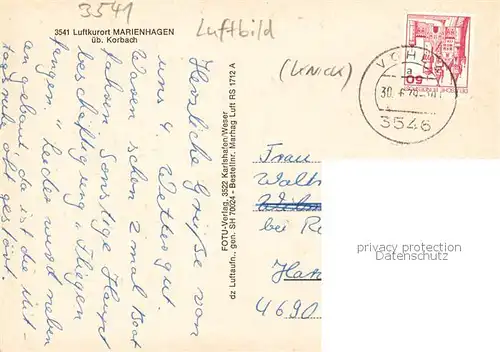 3541
Luftbild
3541 Luftkurort MARIENHAGEN
üb. Korbach
(KNICK)
VÖHL
a
30.-6.79.-
3546
DEUTSCHE BUNDESPOST
50
Herzliche Grüße von
uns 4. Wetter gut.
Waren schon 2 mal Boot
fahren. Sonstige Haupt
beschäftigung "Fliegen
fangen" Leider wird neben
an gebaut, da ist die Mit-
tagsruhe oft gestört.
FOTU-Verlag, 3522 Karlshafen/Weser
dz Luftaufn., gen. SH 70024 - Bestellnr. Marhag Luft RS 1712 A
Frau
bei
4690
physical copyrights
protected